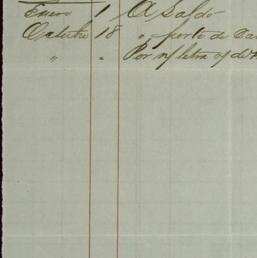 Enero 1 A Saldo
Octubre 18 " porte de Ca
" " Por n/ letra o/ de